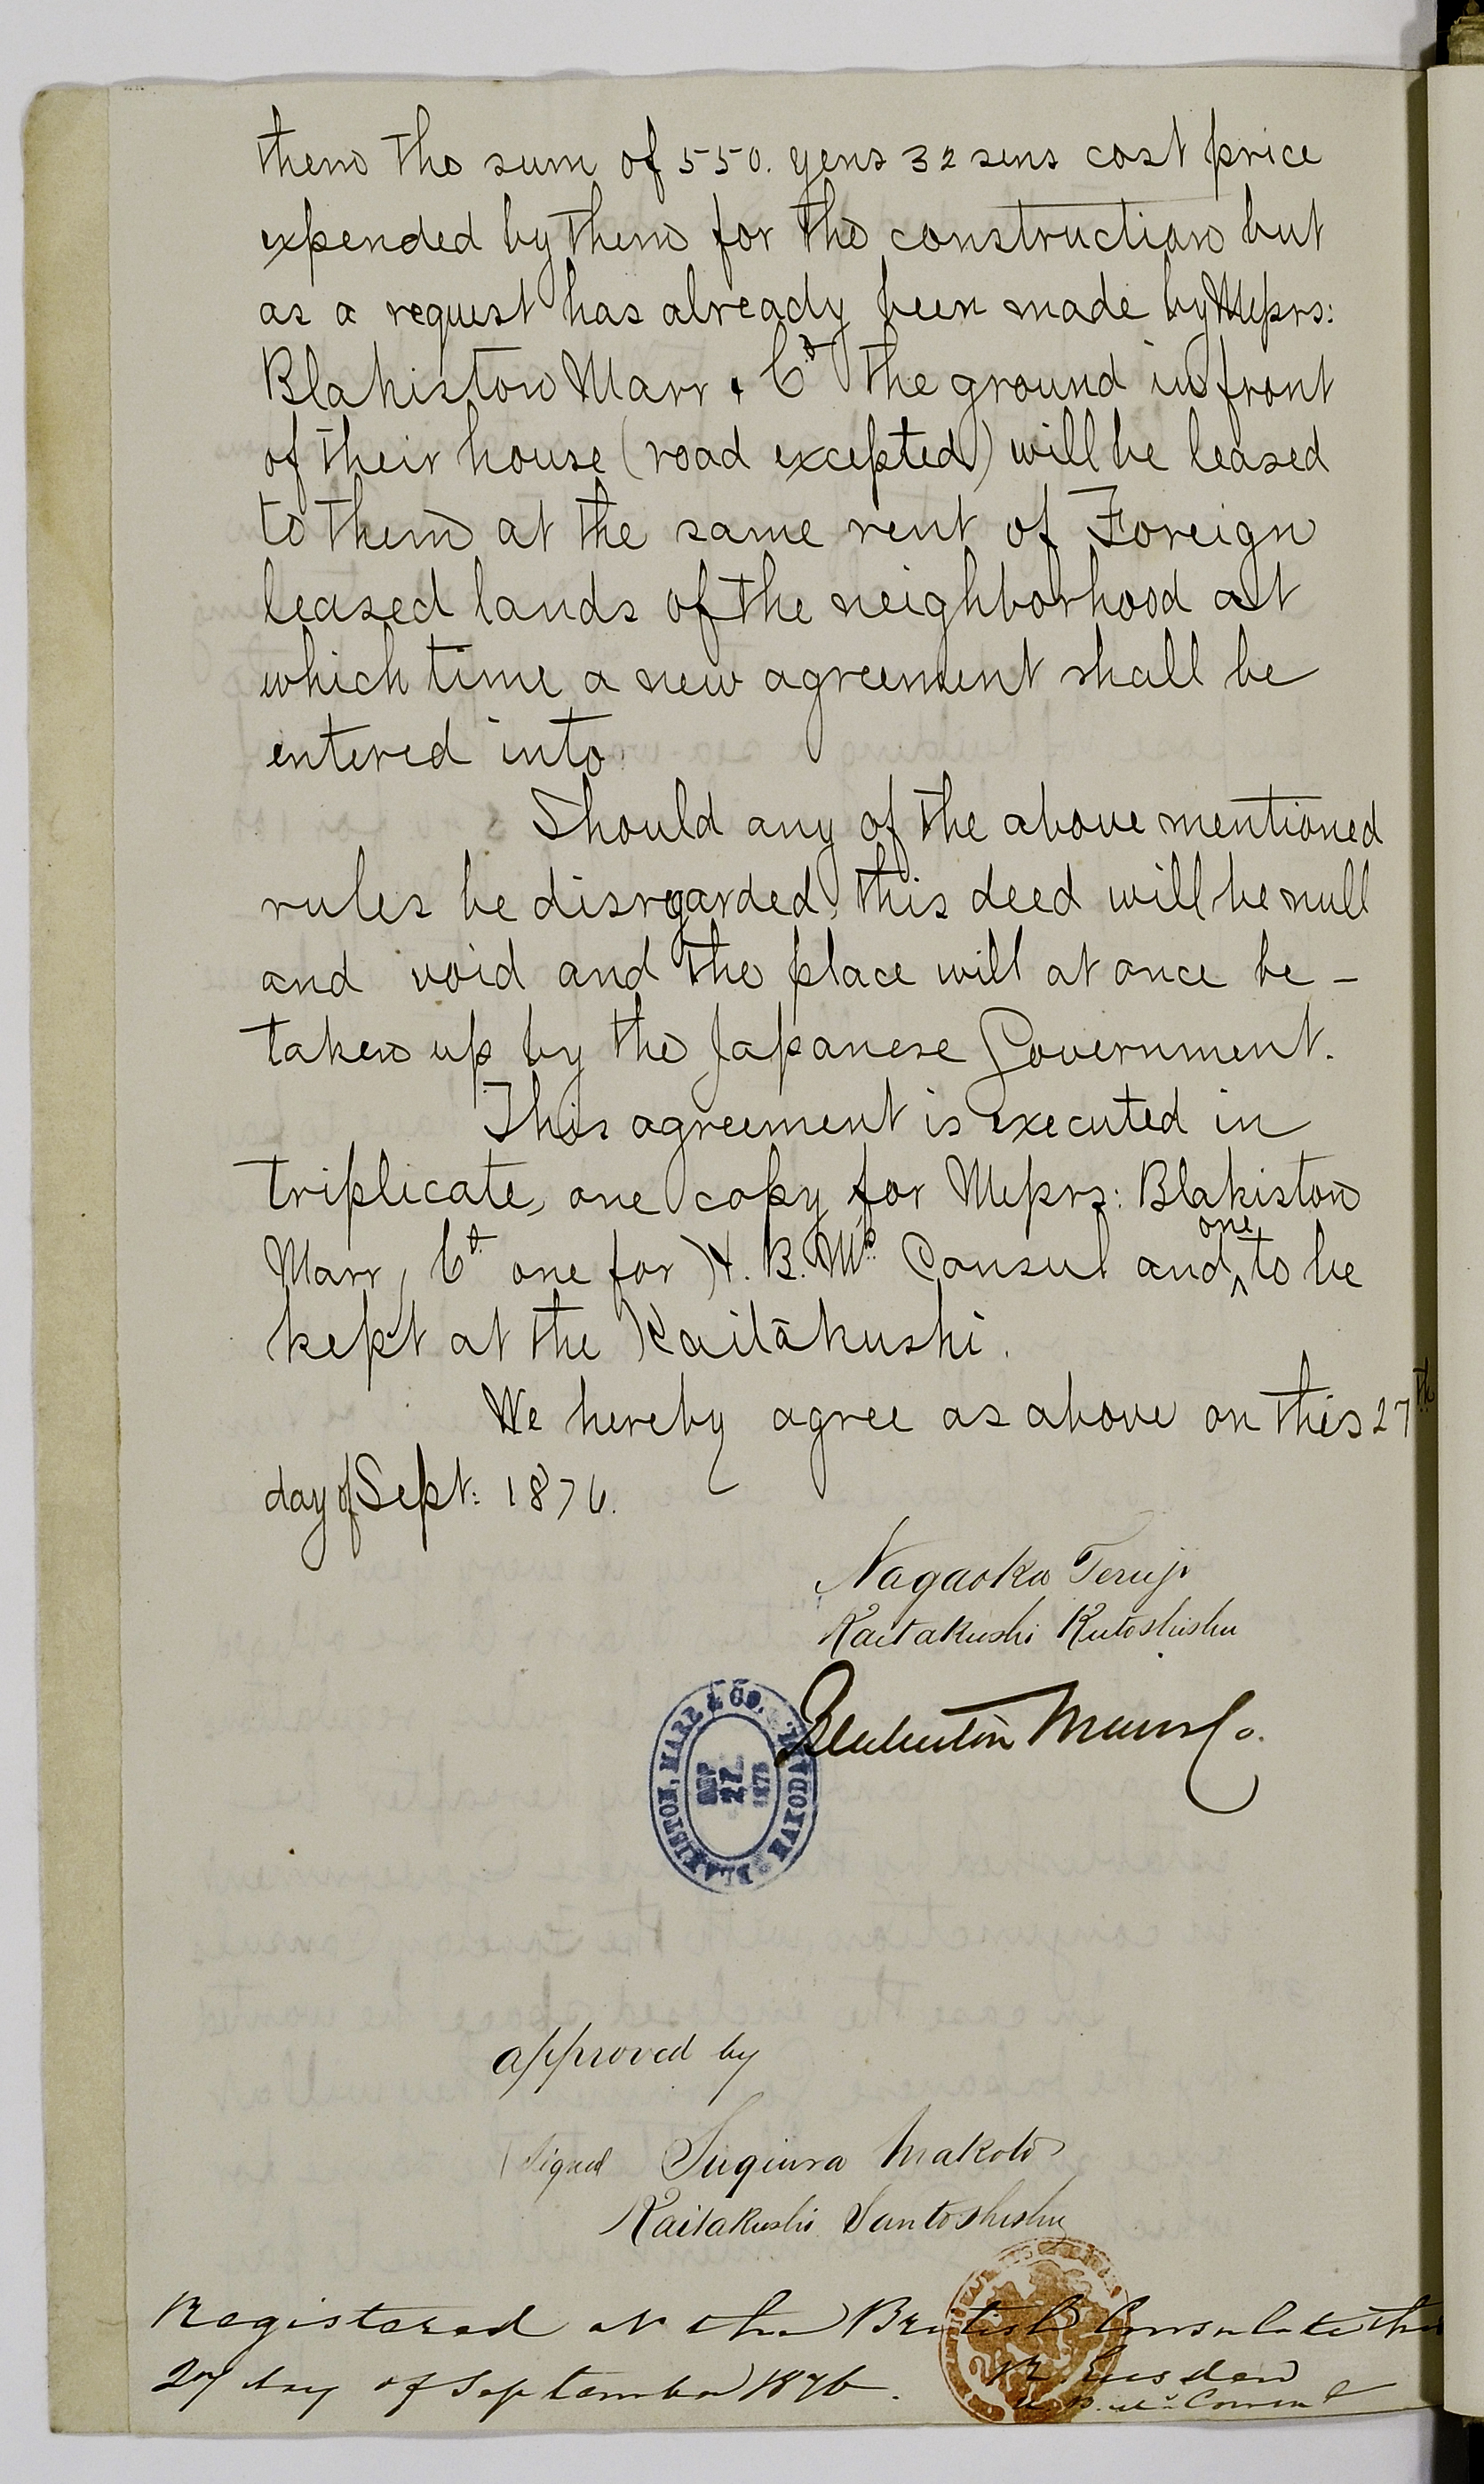 them the sum of 550. yens 32 sens cost price
expended by them for the construction but
as a request has already been made by Messrs:
Blakiston Marr & Co the ground in front
of their house (road excepted) will be leased
to them at the same rent of Foreign
leased lands of the neighborhood at
which time a new agreement shall be
entered into.
Should any of the above mentioned
rules be disregarded, this deed will be null
and void and the place will at once be -
taken up by the Japanese Government.
This agreement is executed in
triplicate, one copy for Messrs: Blakiston
Marr, Co one for H. B. Ms Consul and one to be
kept at the Kaitakushi.
We hereby agree as above on this 27th
day of Sept: 1876.
Nagaoka Teruji
Kaitakushi
Blakiston Marr & Co.
BLAKISTON, MARR & CO.
27
approved by
(Signed Sugiura Makoto
Kaitakushi
Registered at the British Consulate this
27 day of September 1876.
R. Eusden
H. B. M's Consul